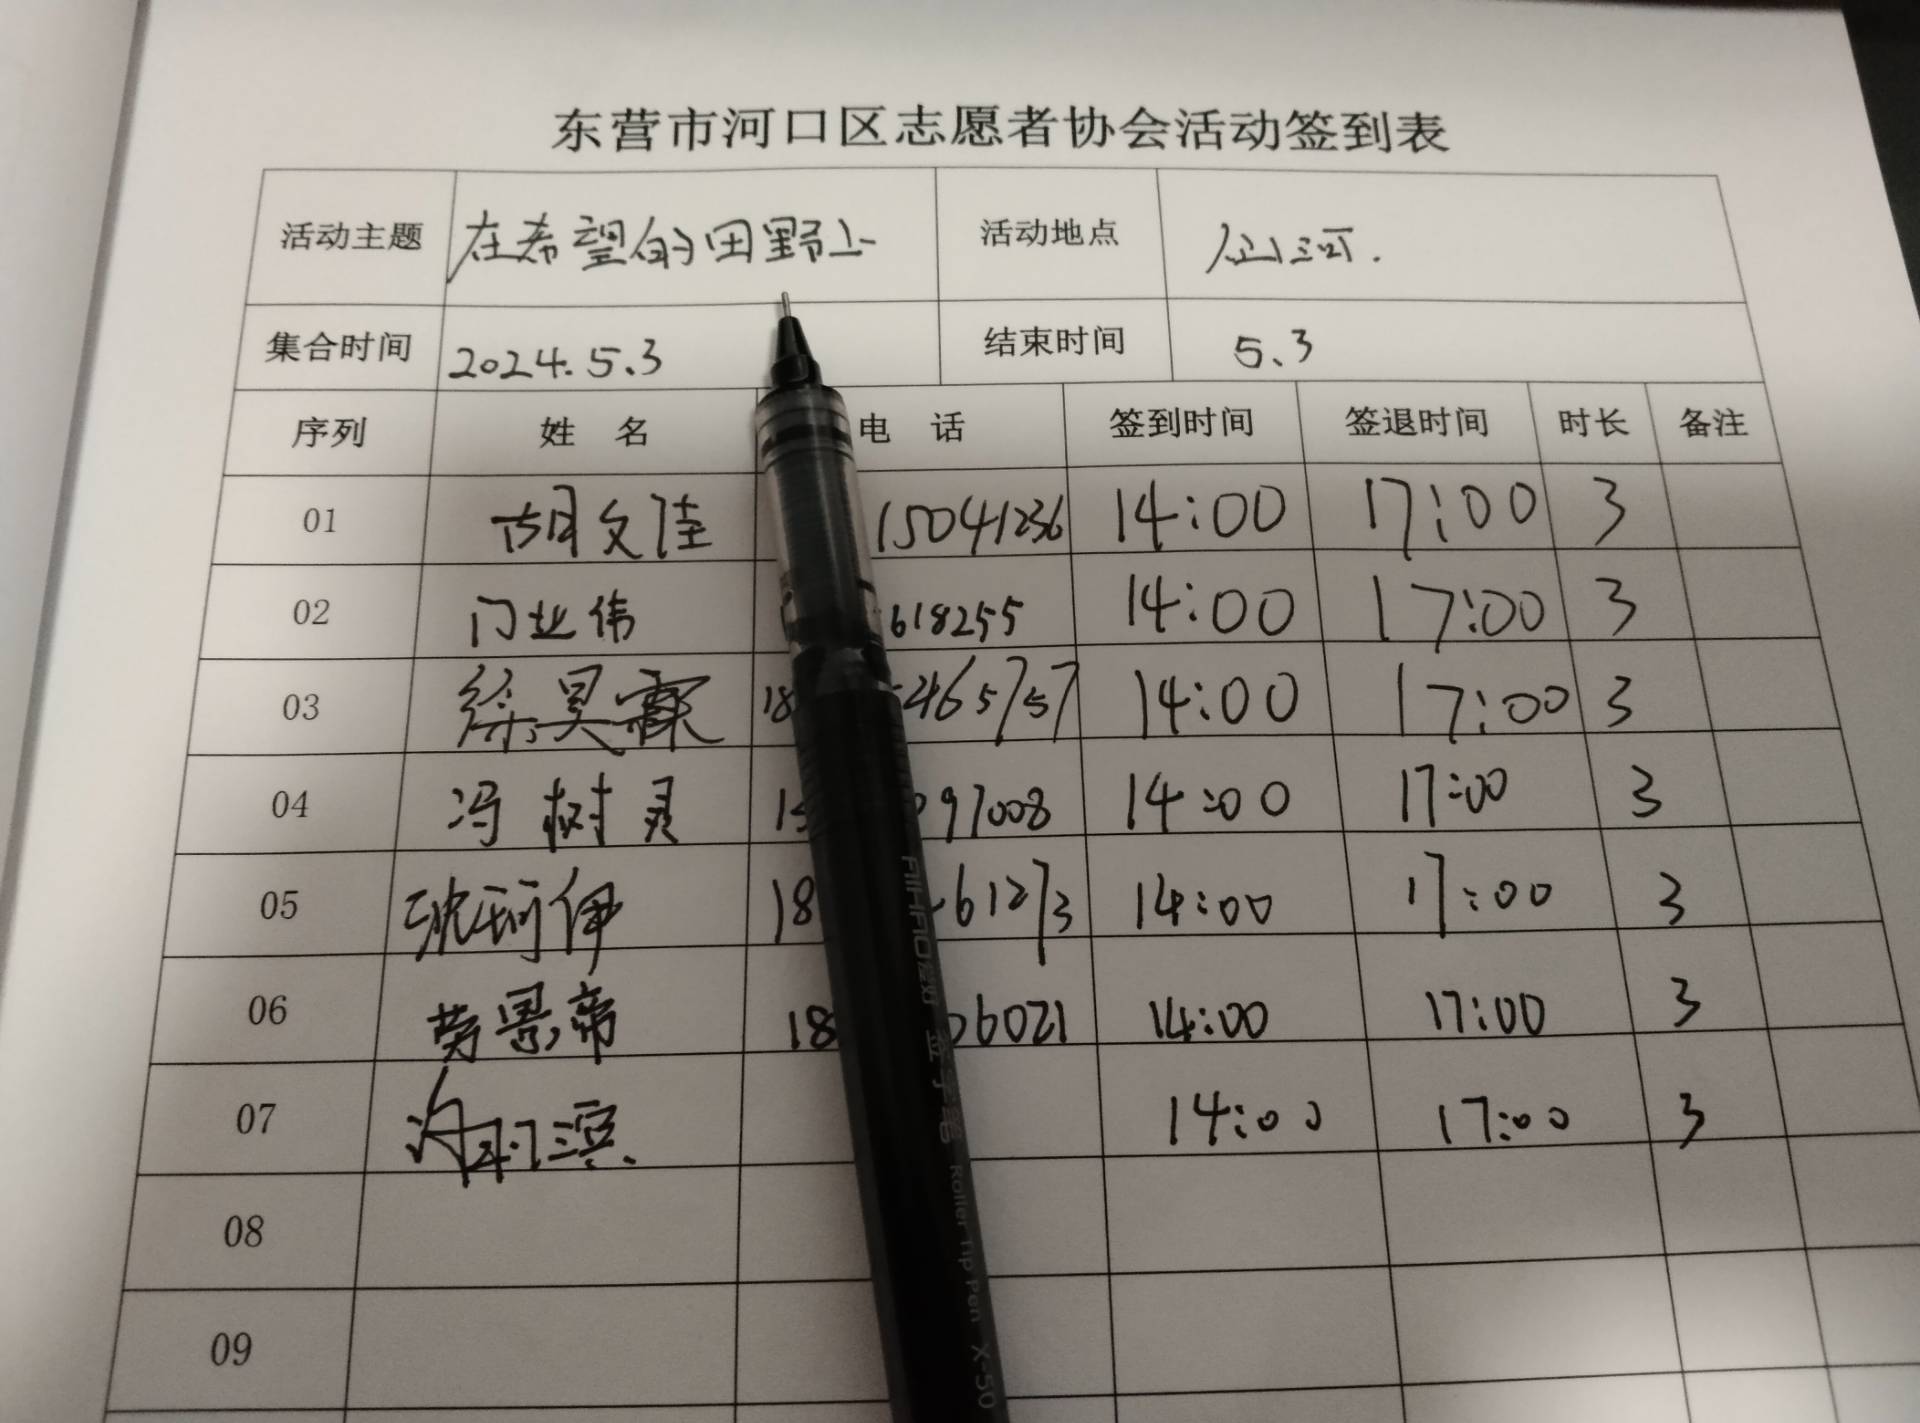 东营市河口区志愿者协会活动签到表
活动主题 在希望的田野上 活动地点 仙河.
集合时间 2024.5.3 结束时间 5.3
序列 姓 名 电 话 签到时间 签退时间 时长 备注
01 胡文佳 15041236 14:00 17:00 3
02 门业伟 618255 14:00 17:00 3
03 徐昊霖 18 2465757 14:00 17:00 3
04 冯树灵 15 097008 14:00 17:00 3
05 沈珂伊 18 61273 14:00 17:00 3
06 劳景帝 18 06021 14:00 17:00 3
07 滨 14:00 17:00 3
08
09
AIHAO爱好 签字笔 Roller Tip Pen X-50